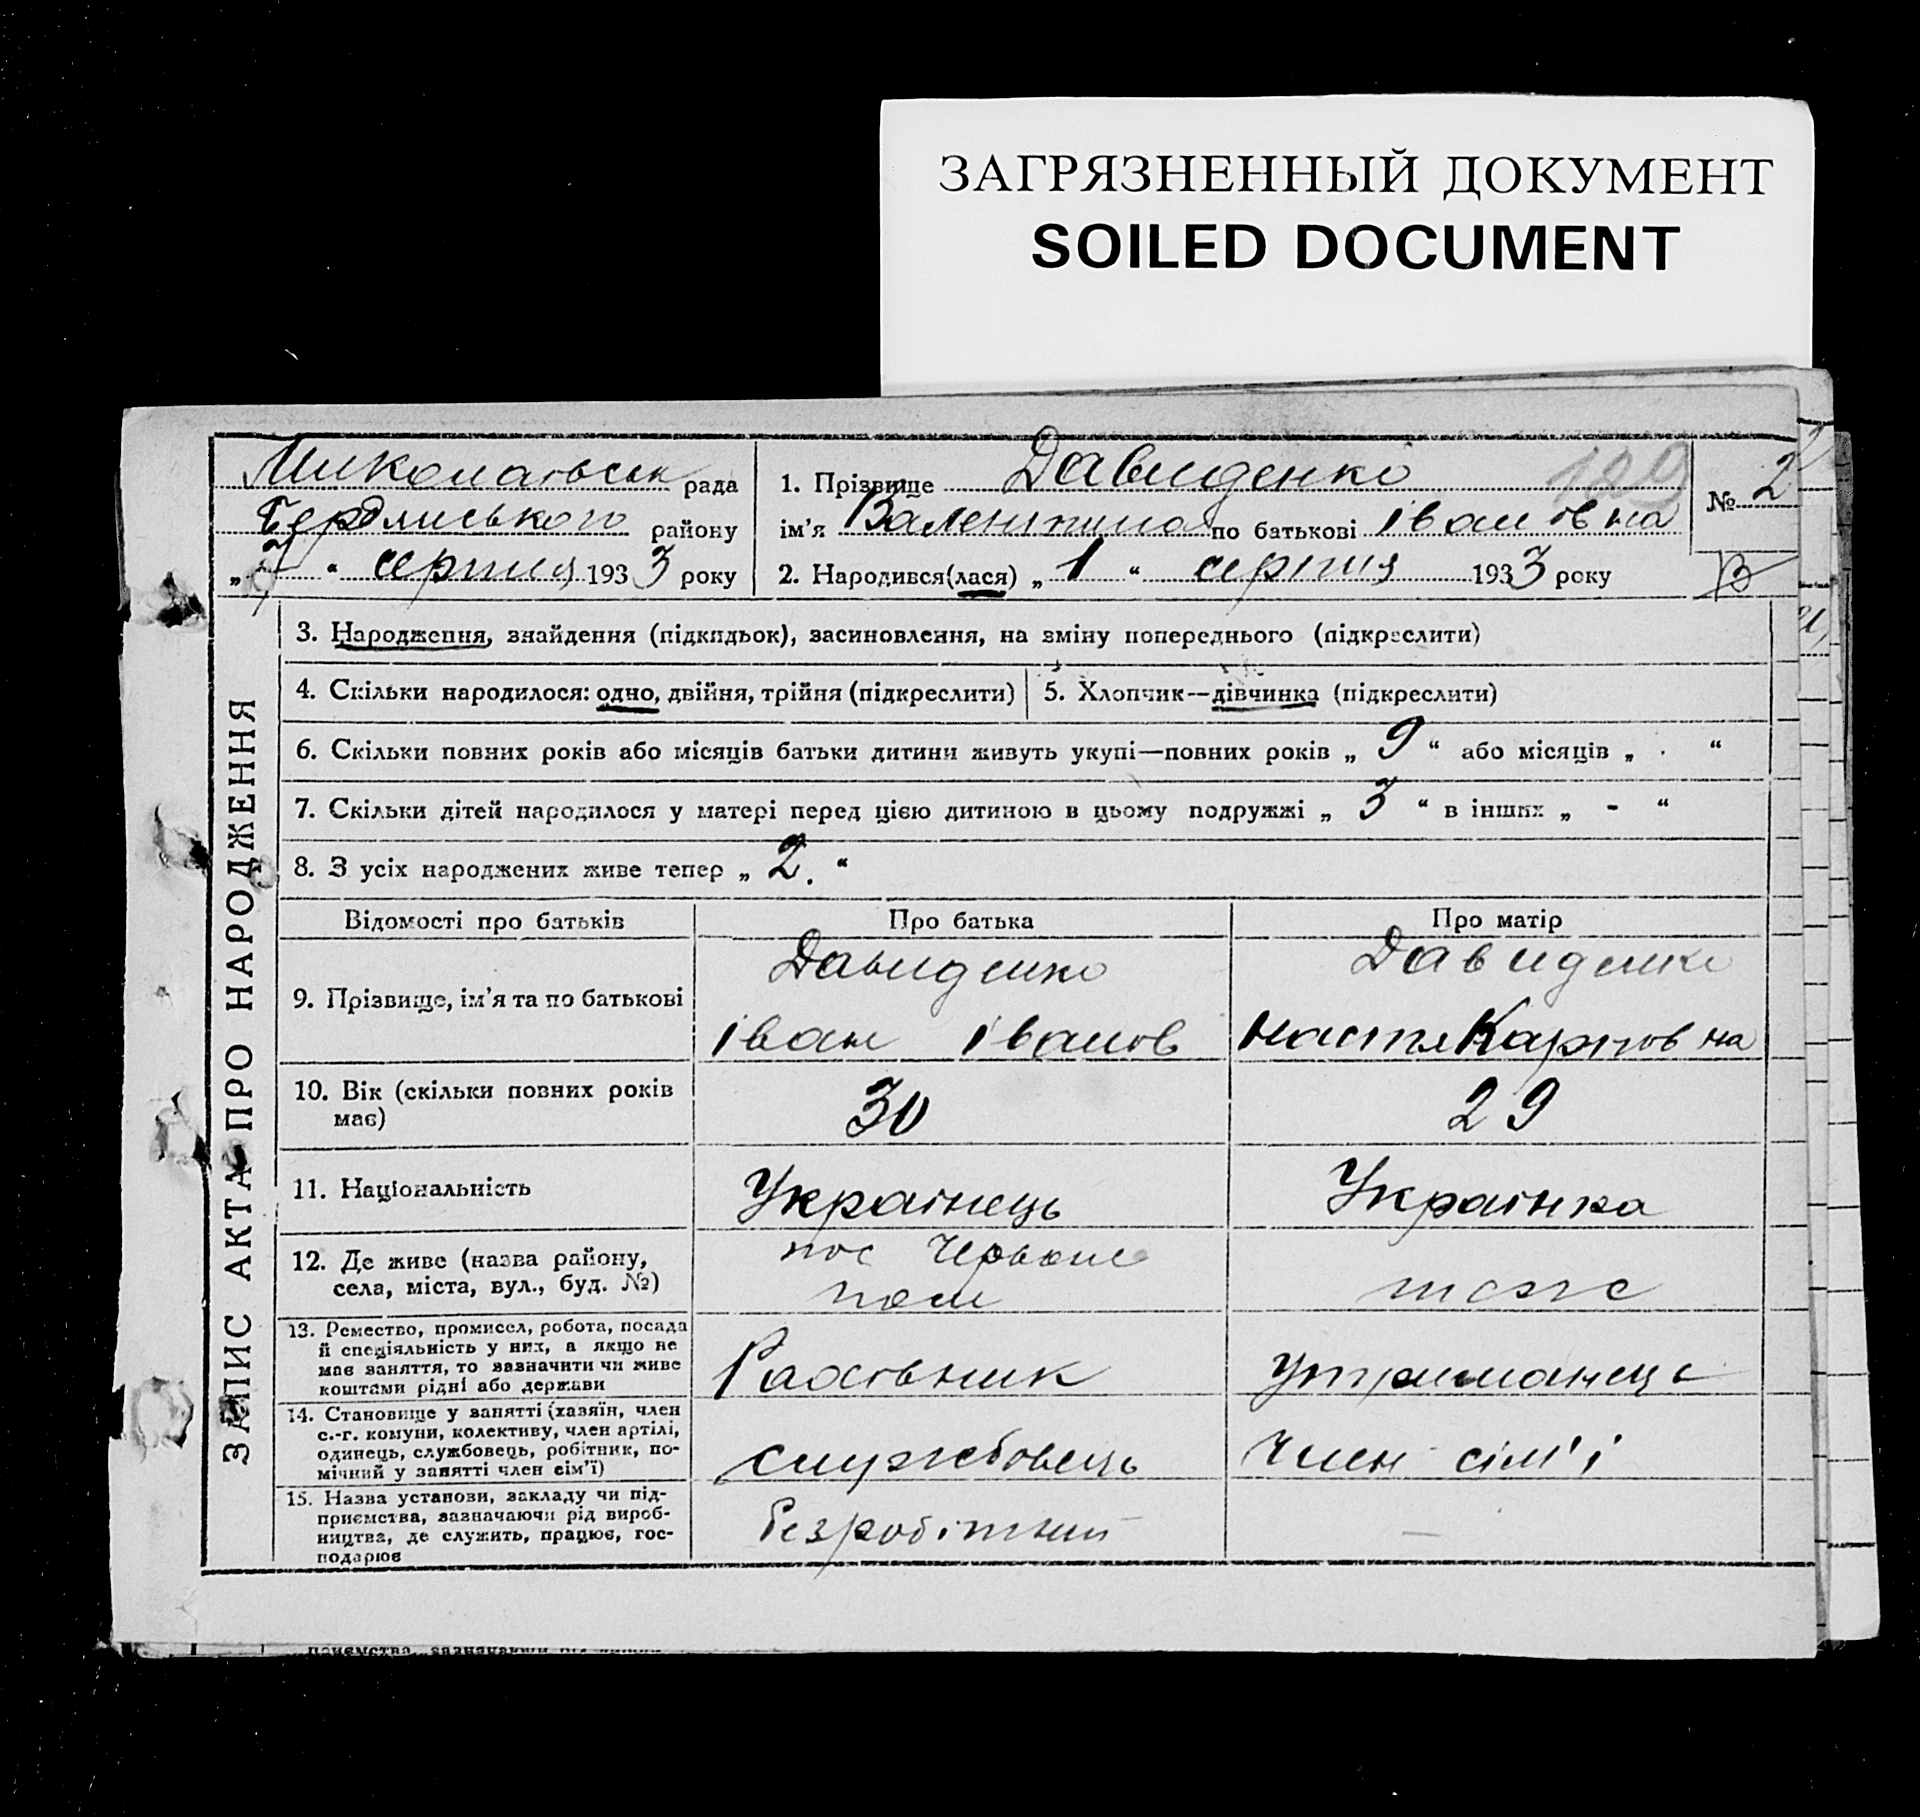 ЗАГРЯЗНЕННЫЙ ДОКУМЕНТ
SOILED DOCUMENT
Миколаївськ рада
Бердянського району
„ 7 “ серпня 1933 року
1. Прізвище Давиденко
ім’я Валентина по батькові Івановна
2. Народився(лася) „ 1 “ серпня 1933 року
№ 2
ЗАПИС АКТА ПРО НАРОДЖЕННЯ
3. Народження, знайдення (підкидьок), засиновлення, на зміну попереднього (підкреслити)
4. Скільки народилося: одно, двійня, трійня (підкреслити)
5. Хлопчик—дівчинка (підкреслити)
6. Скільки повних років або місяців батьки дитини живуть укупі—повних років „ 9 “ або місяців „ . “
7. Скільки дітей народилося у матері перед цією дитиною в цьому подружжі „ 3 “ в інших „ - “
8. З усіх народжених живе тепер „ 2. “
Відомості про батьків
Про батька
Про матір
9. Прізвище, ім’я та по батькові
Давиденко
Іван Іванов
Давиденко
Настя Карповна
10. Вік (скільки повних років
має)
30
29
11. Національність
Українець
Українка
12. Де живе (назва району,
села, міста, вул., буд. №)
пос Червоне
поле
тоже
13. Ремество, промисел, робота, посада
й спеціяльність у них, а якщо не
має заняття, то зазначити чи живе
коштами рідні або держави
утриманець
14. Становище у занятті (хазяїн, член
с.-г. комуни, колективу, член артілі,
одинець, службовець, робітник, по-
мічний у занятті член сім’ї)
службовець
Член сім'ї
15. Назва установи, закладу чи під-
приємства, зазначаючи рід вироб-
ництва, де служить, працює, гос-
подарює
Безробітний
—